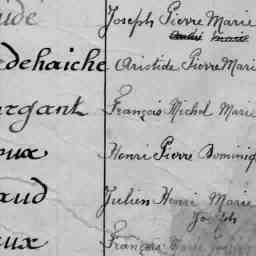 Joseph Pierre Marie
dehaiche Aristide Pierre Mari
rgant François Michel Marie
oux Henri Pierre Dominiq
aud Julien Henri Marie
Joseph
aux François Marie